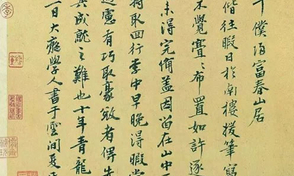 僕歸富春山居
偕往暇日於南樓援筆寫
不覺亹亹布置如許逐
未得完備蓋因留在山中
特取回行李中早晚得暇當
過慮有巧取豪敓者俾先
其成就之難也十年青龍
一日大癡學人書于雲間夏氏